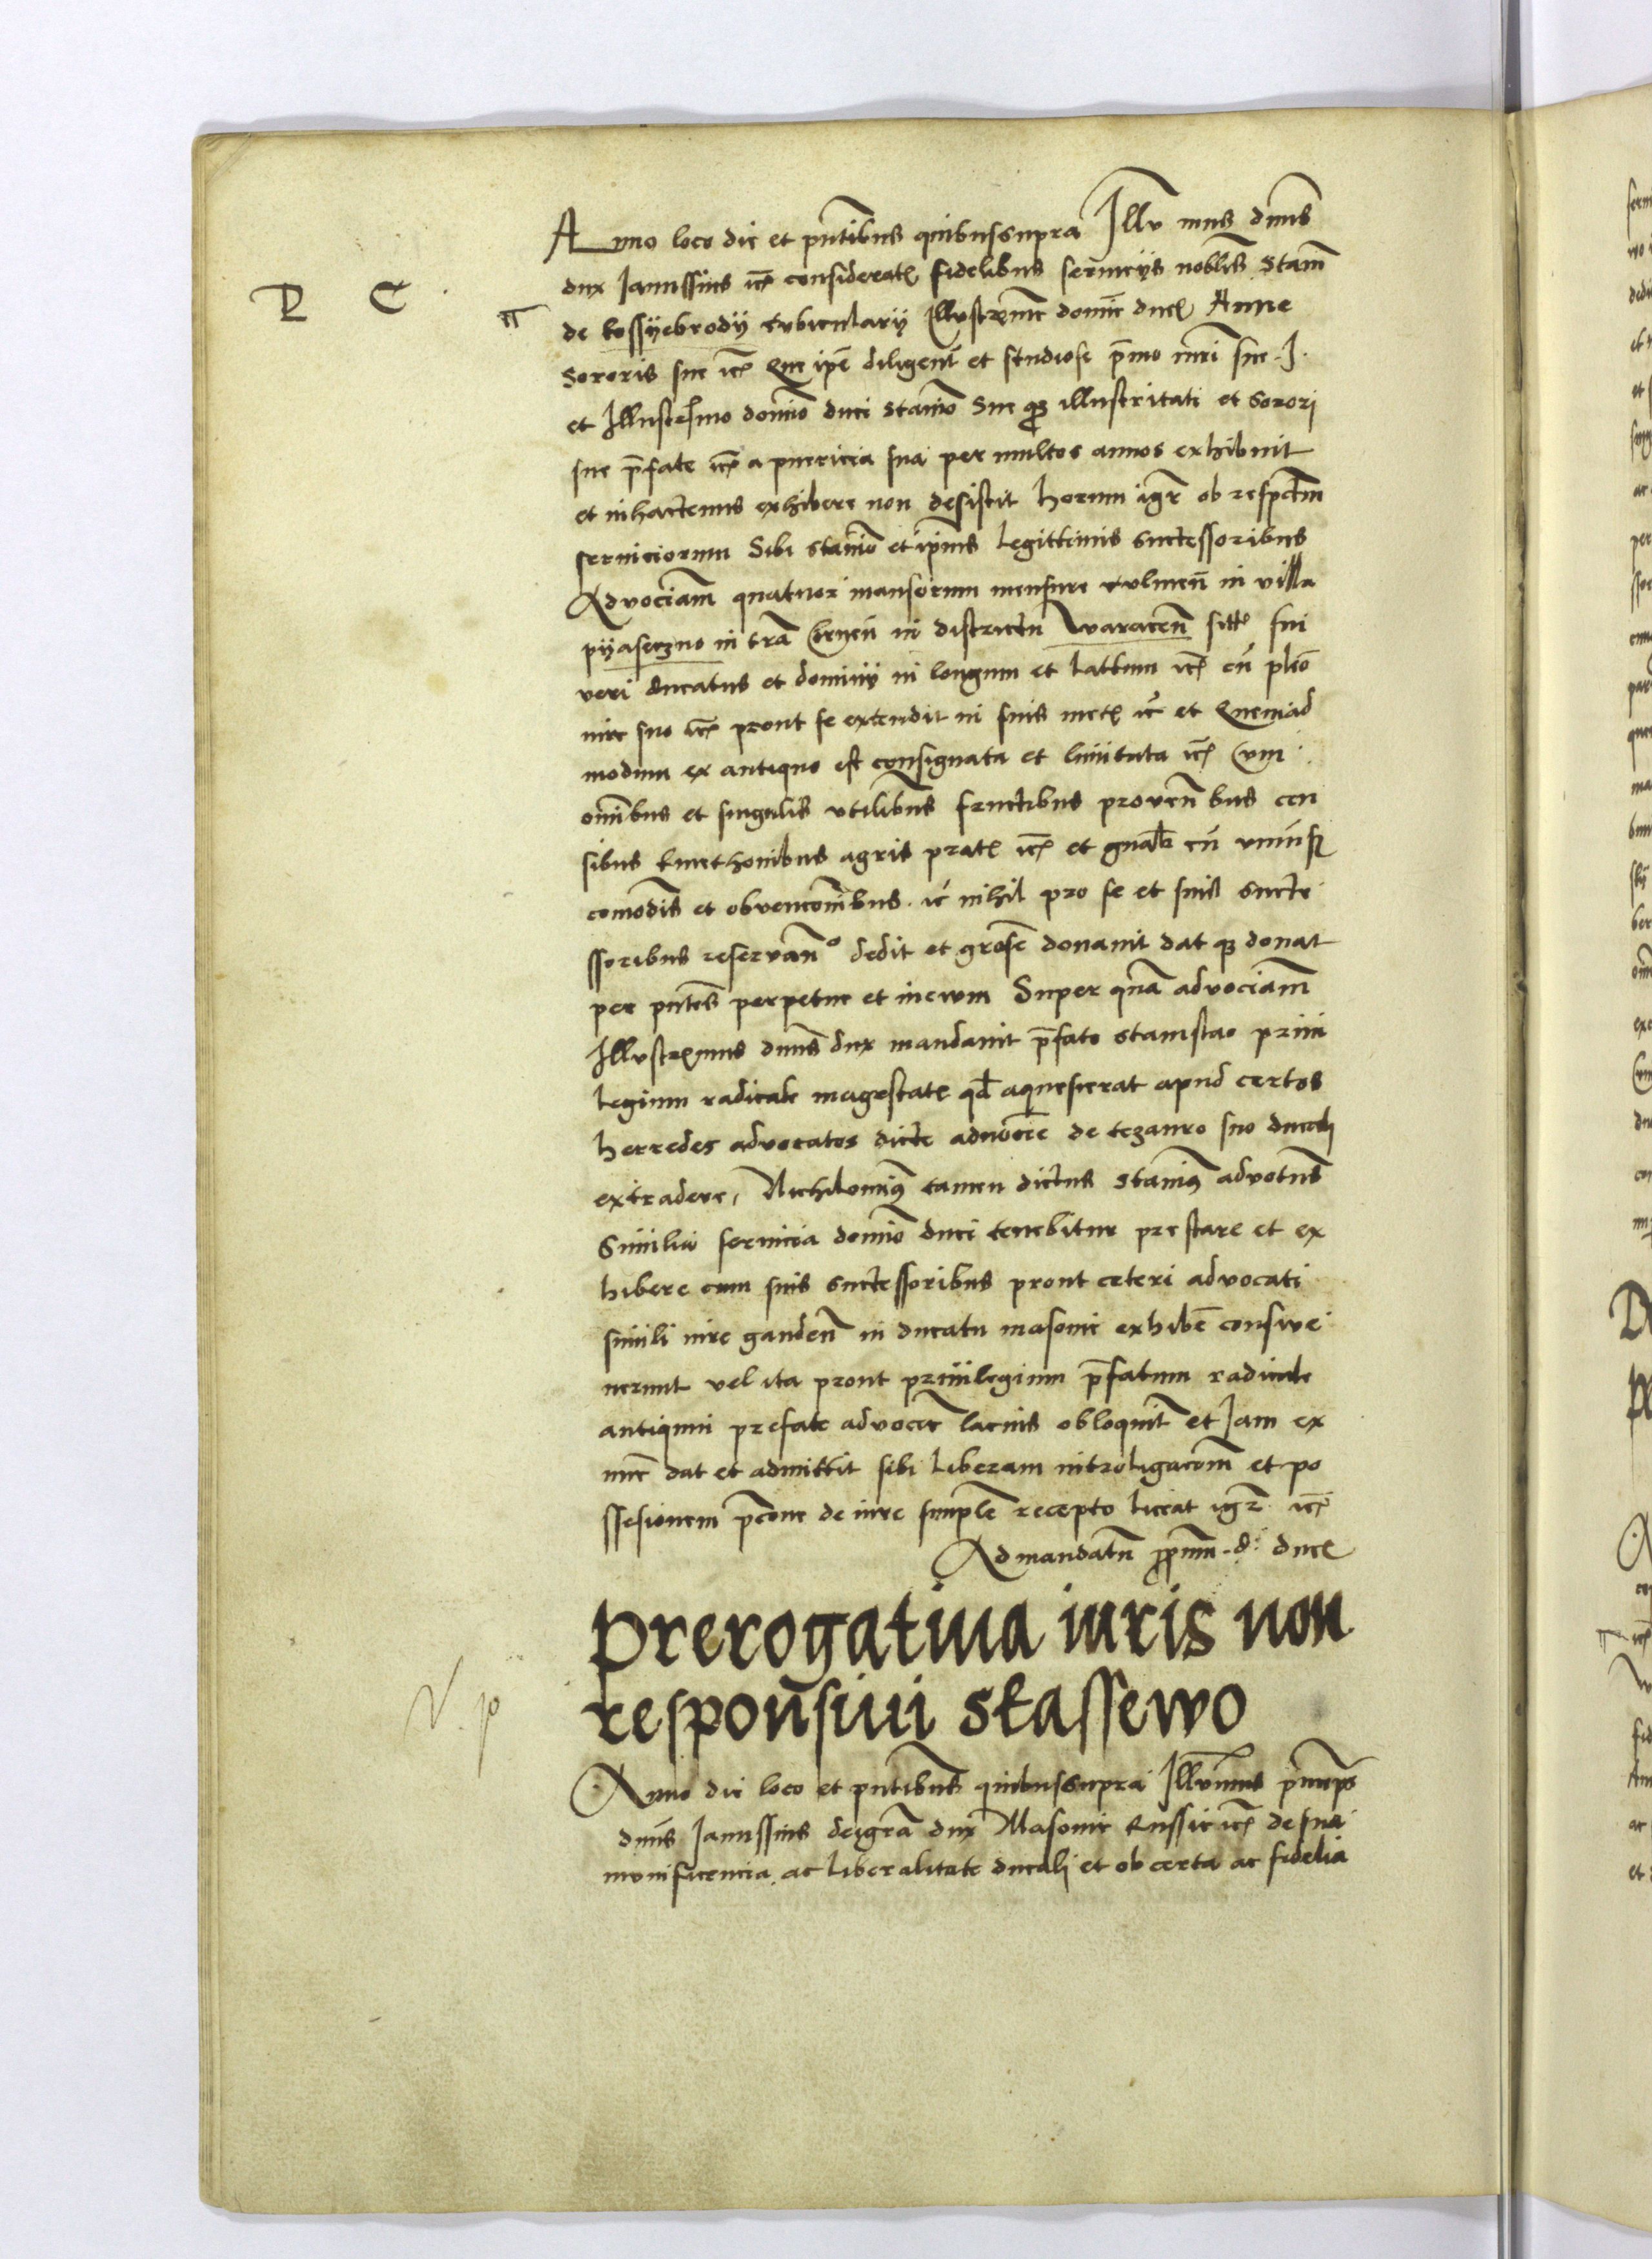 Anno loco die et pn̄tibus quibussupra Illu mus dnus
dux Janussius etc̄ considerat fidelibus seruicys nobilis Stani
P C
de kossyebrody cubicularij Illustrime domīe ducis Anne
Sororis sue etc̄ Que ipe diligent et studiose p̄mo mr̄i sue J
et Illustrissimo domīo duci stanīo Sue qz illustritati et sorori
sue p̄fate etc̄ a puericia sua per multos annos exhibuit
et inhactenus exhibere non desistit horum igr ob respectum
seruiciorum Sibi stanīo et ipīus Legittimis successoribus
Advociam quatuor mansorum mensure culmen̄ in villa
pyaseczno in tr̄a Cirnen̄ in districtu Waracen̄ sitt sui
veri ducatus et dominij in longum et lattum etc̄ cū pleo
iure suo etc̄ prout se extendit in suis met etc̄ et Quemad
modum ex antiquo est consignata et limitata etc̄ Cum
omībus et singulis utilibus fructibus proven bus cen
sibus kmethonibus agris prat etc̄ et gnalr cū uniuſ
comodis et obvencomībus etc̄ nihil pro se et suis succe
ssoribus reservan° dedit et grose donauit dat qz donat
per pn̄tes perpetue et inewm Super quā advociam
Illustrimus dnus dux mandauit p̄fato stanislao priui
legium radicale magestat qd aquesierat apud certos
herredes advocatos dicte aduocie de tezauro suo ducali
extradere, Nichilominus tamen dictus stanius advotus
Similia seruicia domīo duci tenebitur prestare et ex
hibere cum suis successoribus prout ceteri advocati
simili iure gauden̄ in ducatu masouie exhibe consue
uerunt vel ita prout priuilegium p̄fatum radicale
antiquum prefate advocie lacius obloquit et Jam ex
nunc dat et admittit sibi liberam intro ligacom et po
ssesionem p̄cone de iure simple recepto liceat igr etc̄
Ad mandatū ppnm d ducis
prerogatiua iuris non
responsiui stassewo
N. p
Anno die loco et pn̄tibus quibussupra Illumus pīnceps
dnus Janussius deigra dux Masouie Russie etc̄ de sua
munificencia ac liberalitate ducali et ob certa ac fidelia